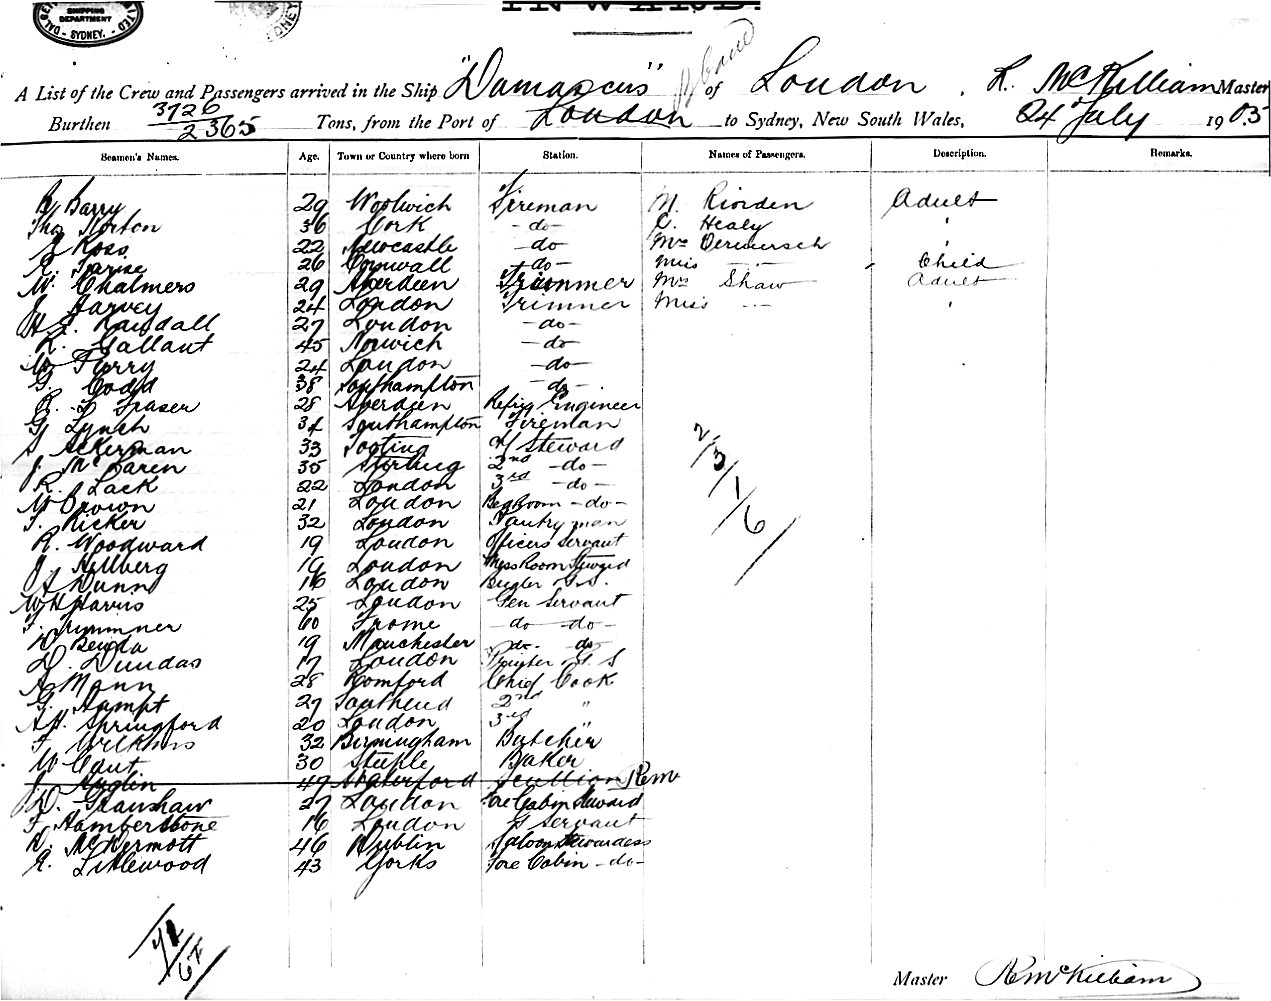 INWARD.
SHIPPING
DEPARTMENT
SYDNEY.
A List of the Crew and Passengers arrived in the Ship "Damascus" of London, R. McKilliam Master
Burthen 3726 / 2365 Tons, from the Port of London to Sydney, New South Wales, 24 July 1903
Seamen's Names. Age. Town or Country where born Station. Names of Passengers. Description. Remarks.
Barry 29 Woolwich Fireman M. Riorden Adult
Thos Norton 36 Cork -do- Healy "
Ross 22 Newcastle -do Mrs "
26 Cornwall -do- Miss -"- Child
W. Chalmers 29 Aberdeen Trimmer Mrs Shaw Adult
J. Harvey 24 London Trimmer Miss -"- "
Randall 27 London -do-
R. Gallant 45 Norwich -do-
24 London -do-
G. Codd 38 Southampton -do-
Fraser 28 Aberdeen Refrig Engineer
G. Lynch 34 Southampton Fireman
Ackerman 33 Tooting Steward
J. McLaren 35 Stirling 2nd -do-
R. Lack 22 London 3rd -do-
W Brown 21 London Bedroom -do-
F. Ricker 32 London Pantryman
R. Woodward 19 London Officers Servant
J. Hellberg 19 London Mess Room Steward
A Dunn 16 London Bugler G.S.
W H Harris 25 London Gen Servant
F. Trimmer 60 Frome -do- -do-
Benda 19 Manchester -do- -do-
D. Dundas 17 London Printer G.S
A Mann 28 Romford Chief Cook
G. Hampt 27 Southend 2nd "
A H. Springford 20 London 3rd "
F Wilkins 32 Birmingham Butcher
W Cant 30 Steeple Baker
J Anglin 47 Waterford Scullion Rem
Granshaw 27 London Fore Cabin Steward
F Hamberstone 16 London G Servant
McKermott 46 Dublin Saloon Stewardess
A. Littlewood 43 Yorks Fore Cabin -do-
2/3/1/6/
Master R McKilliam